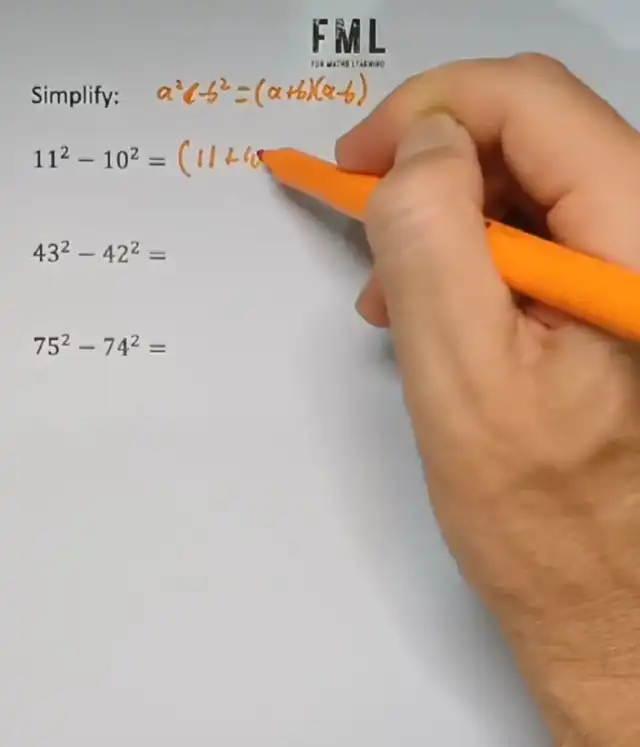 FML
FOR MATHS LEARNING
Simplify: a² - b² = (a+b)(a-b)
11² − 10² = (11+10
43² − 42² =
75² − 74² =